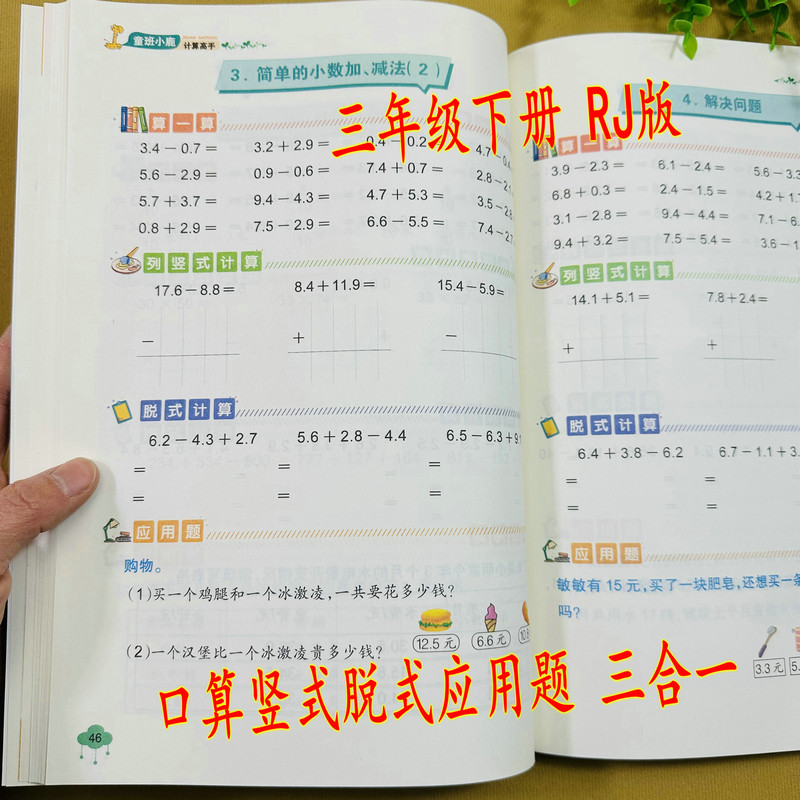 童班小鹿 计算高手
3. 简单的小数加、减法(2)
三年级下册 RJ版
算一算
3.4-0.7= 3.2+2.9=
5.6-2.9= 0.9-0.6= 7.4+0.7=
5.7+3.7= 9.4-4.3= 4.7+5.3=
0.8+2.9= 7.5-2.9= 6.6-5.5=
列竖式计算
17.6-8.8= 8.4+11.9= 15.4-5.9=
- + -
脱式计算
6.2-4.3+2.7 5.6+2.8-4.4 6.5-6.3+9
= = =
= = =
应用题
购物。
(1)买一个鸡腿和一个冰激凌,一共要花多少钱?
12.5元 6.6元
(2)一个汉堡比一个冰激凌贵多少钱?
46
4. 解决问题
算一算
3.9-2.3= 6.1-2.4= 5.6-3.3
6.8+0.3= 2.4-1.5= 4.2+1.
3.1-2.8= 9.4-4.4= 7.1-6.
9.4+3.2= 7.5-5.4= 3.6-1
列竖式计算
14.1+5.1= 7.8+2.4=
+ +
脱式计算
6.4+3.8-6.2 6.7-1.1+3.
= =
= =
应用题
敏敏有15元,买了一块肥皂,还想买一条
吗?
3.3元
口算竖式脱式应用题 三合一